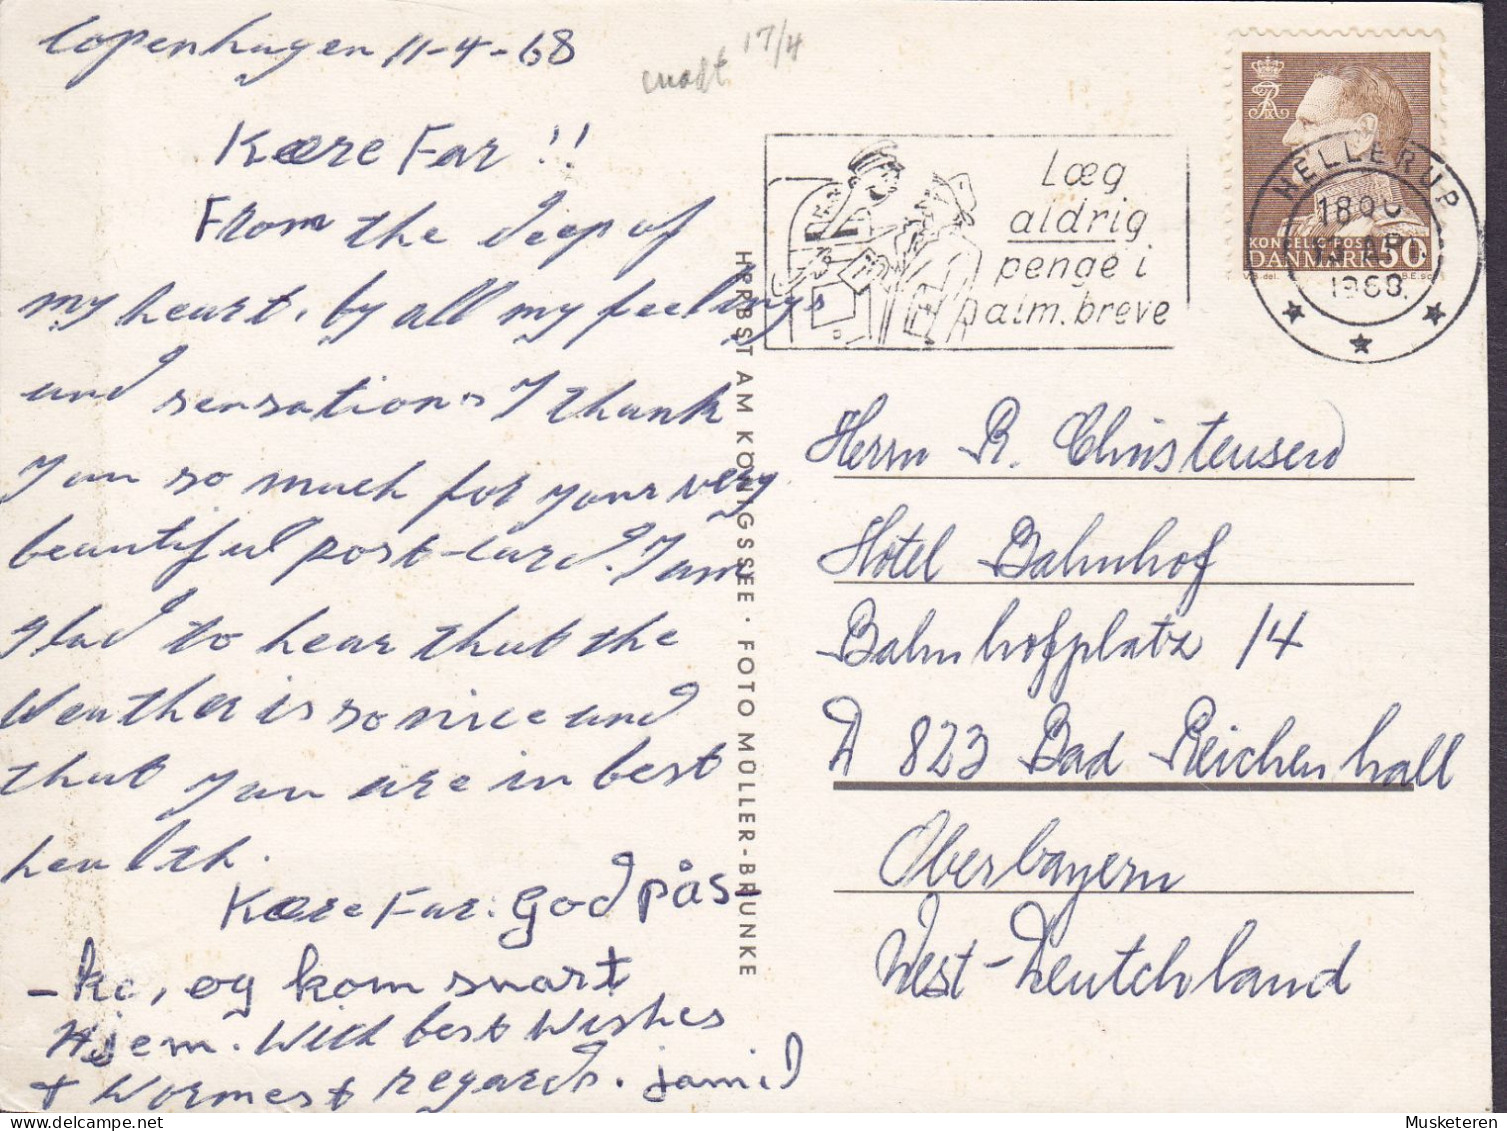 Copenhagen 11-4-68
17/4
Kære Far !!
From the deep of
my heart, by all my feelings
and sensations I thank
you so much for your very
beautiful post-card. I am
glad to hear that the
weather is so nice and
that you are in best
health.
Kære Far. God pås-
-ke, og kom snart
Hjem. With best wishes
+ Wormest regards. jamil
HERBST AM KÖNIGSSEE · FOTO MÜLLER-BRUNKE
Læg
aldrig
penge i
alm. breve
HELLERUP
1968
KONGELIG POST
DANMARK 50
Herrn R. Christensen
Hotel Bahnhof
Bahnhofplatz 14
D 823 Bad Reichenhall
Oberbayern
West-Deutchland
Musketeren